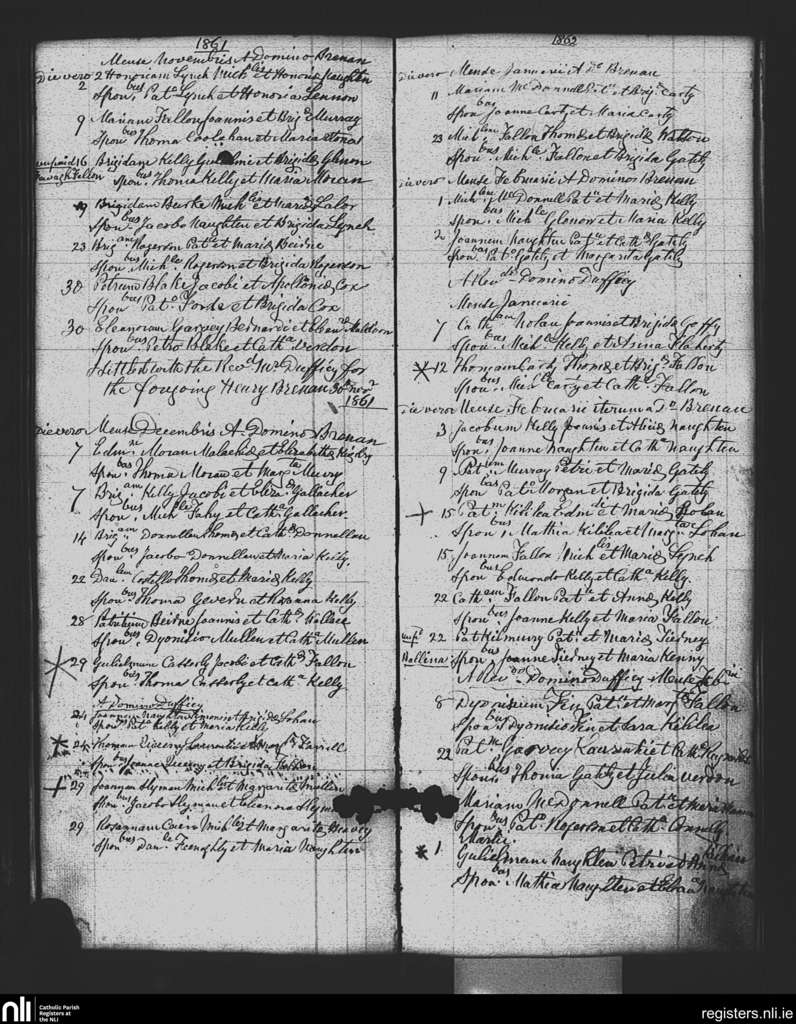 1861
Mense Novembris A Domino Brenan
Die vero 2 Honoriam Lynch Mich lis et Honoriæ Naughten
2 Spon. bus Pat o Lynch et Honoria Lennon
9 Mariam Fallon Joannis et Brig æ Murray
Spon bus Thoma Coolahan et Maria
unpaid 16 Brigidam Kelly et Brigidæ Glenon
Fallon Spon. bus Thoma Kelly et Maria Moran
Brigidam Burke Mich lis et Mariæ Lalor
Spon. bus Jacobo Naughten et Brigida Lynch
23 Brig am Rogerson Pat ii et Mariæ Beirne
Spon. bus Mich le Rogerson et Brigida Rogerson
30 Petrum Blake Jacobi et Apolloniæ Cox
Spon bus Pat o Forde et Brigida Cox
30 Eleanoram Garvey Bernardi et Elean æ Muldoon
Spon. bus Petro Blake et Cath a Verdon
Settled with the Rev d Mr Duffiey for
the forgoing Henry Brenan 30th Nov r
1861
Die vero Mense Decembris A Domino Brenan
7 Edm. Moran Malachiæ et Elizabethæ
Spon. bus Thoma Moran et Mar ta
7 Brig. am Kelly Jacobi et Eliza. Gallacher
Spon. bus Mich le Fahy et Cath. Gallacher
14 Brig. am Donnellan Thomæ et Cath æ Donnellan
Spon. bus Jacobo Donnellan et Maria Kelly.
22 Dan. lem Costello Thomæ et Mariæ Kelly
Spon. bus Thoma et Kelly
28 Patritium Beirne Joannis et Cath æ Wallace
Spon. bus Dyonisio Mullen et Cath a Mullen
29 Gulielmum Casserly Jacobi et Cath æ Fallon
Spon. bus Thoma Casserly et Cath a Kelly
A Domino Duffiey
24 Joannem Naughten et Brigidæ Lohan
Spon. bus Pat o Kelly et Maria Kelly
24 Thomam Laurentii et Farrell
Spon. bus Joanne et Brigida
29 Joannem Slyman Mich lis et Margaritæ Mullen
Spon. bus Jacobo Slyman et Eleanora Slyman
29 Rosannam Cain Mich lis et Margaritæ
Spon. bus Dan. le et Maria Naughten
1862
Die vero Mense Januarii A D o Brenan
11 Mariam McDonnell Pat ii et Brig æ Carty
Spon bus Joanne Carty et Maria Carty
23 Mich. lem Fallon Thomæ et Brigidæ Watson
Spon. bus Mich le Fallon et Brigida Gately
Die vero Mense Februarii A Domino Brenan
1 Mich. lem McDonnell Pat ii et Mariæ Kelly
Spon. bus Mich le Glenon et Maria Kelly
2 Joannem Naughten Pat ii et Cath æ Gately
Spon. bus Pat o Gately et Margarita Gately
A Rev do Domino Duffiey
Mense Januarii
7 Cath. am Nolan Joannis et Brigidæ Goffy
Spon. bus Mich le Kelly et Anna Flaherty
12 Thomam Carty Thomæ et Brig æ Fallon
Spon. bus Mich le Carty et Cath a Fallon
Die vero Mense Februarii iterum a D o Brenan
3 Jacobum Kelly Joannis et Naughten
Spon. bus Joanne Naughten et Cath a Naughten
9 Murray Petri et Mariæ Gately
Spon bus Pat o Morgan et Brigida Gately
15 Pat. m Kililea Edm di et Mariæ
Spon. bus Mathia Kililea et Marg ta Lohan
15 Joannem Fallon Mich lis et Mariæ Lynch
Spon bus Edmondo Kelly et Cath a Kelly.
22 Cath. am Fallon Pat ii et Annæ Kelly
Spon. bus Joanne Kelly et Maria Fallon
22 Pat Kilmurry Pat ii et Mariæ Tiedney
Ballina Spon. bus Joanne Tiedney et Maria Kenny
A Rev do Domino Duffiey Mense Feb rii
8 Dyonisium Fin Pat ii et Mar tæ Fallon
Spon. bus Dyonisio Fin et Sara
22 Pat. m Garvey Laurentii et Cath æ
Spon. bus Thoma Gately et Julia Verdon
Mariam McDonnell Pat ii et Mariæ
Spon. bus Pat. o Rogerson et Cath a Connolly
Martii
1 Gulielmum Naughten Petri et Annæ
Spon. bus Mathia Naughten et Naughten
nli
Catholic Parish
Registers at
the NLI
registers.nli.ie